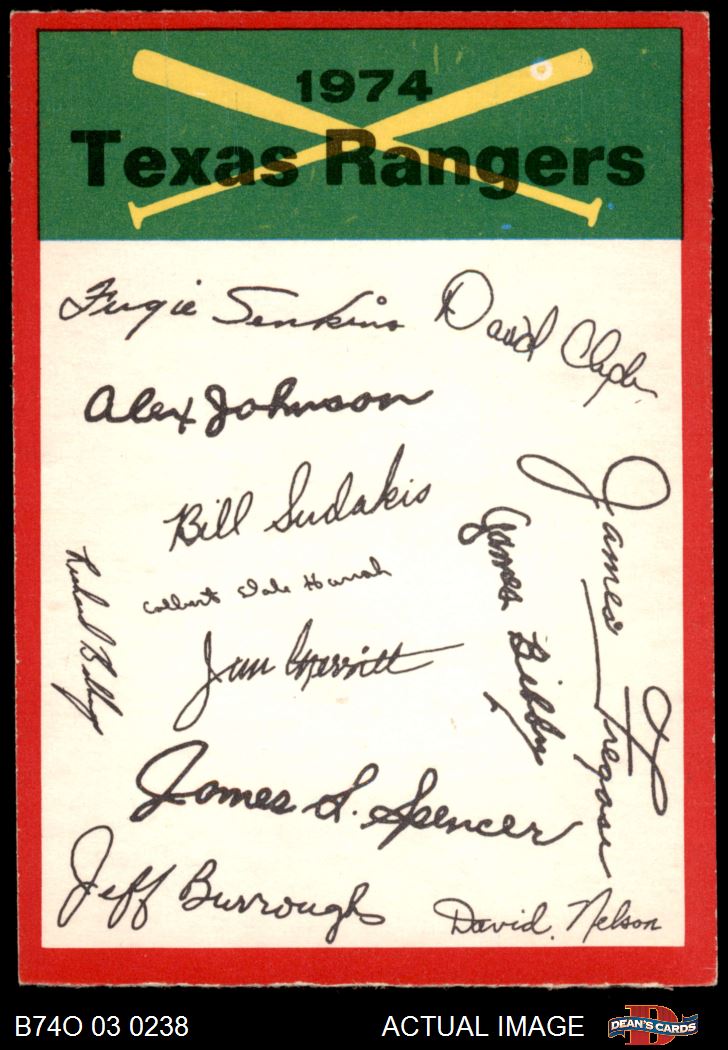 1974
Texas Rangers
Fugie Jenkins
David Clyde
Alex Johnson
Bill Sudakis
James Fregosi
James Bibby
Richard Billings
Jim Merritt
James L. Spencer
Jeff Burroughs
David Nelson
B74O 03 0238
ACTUAL IMAGE
D
DEAN'S CARDS